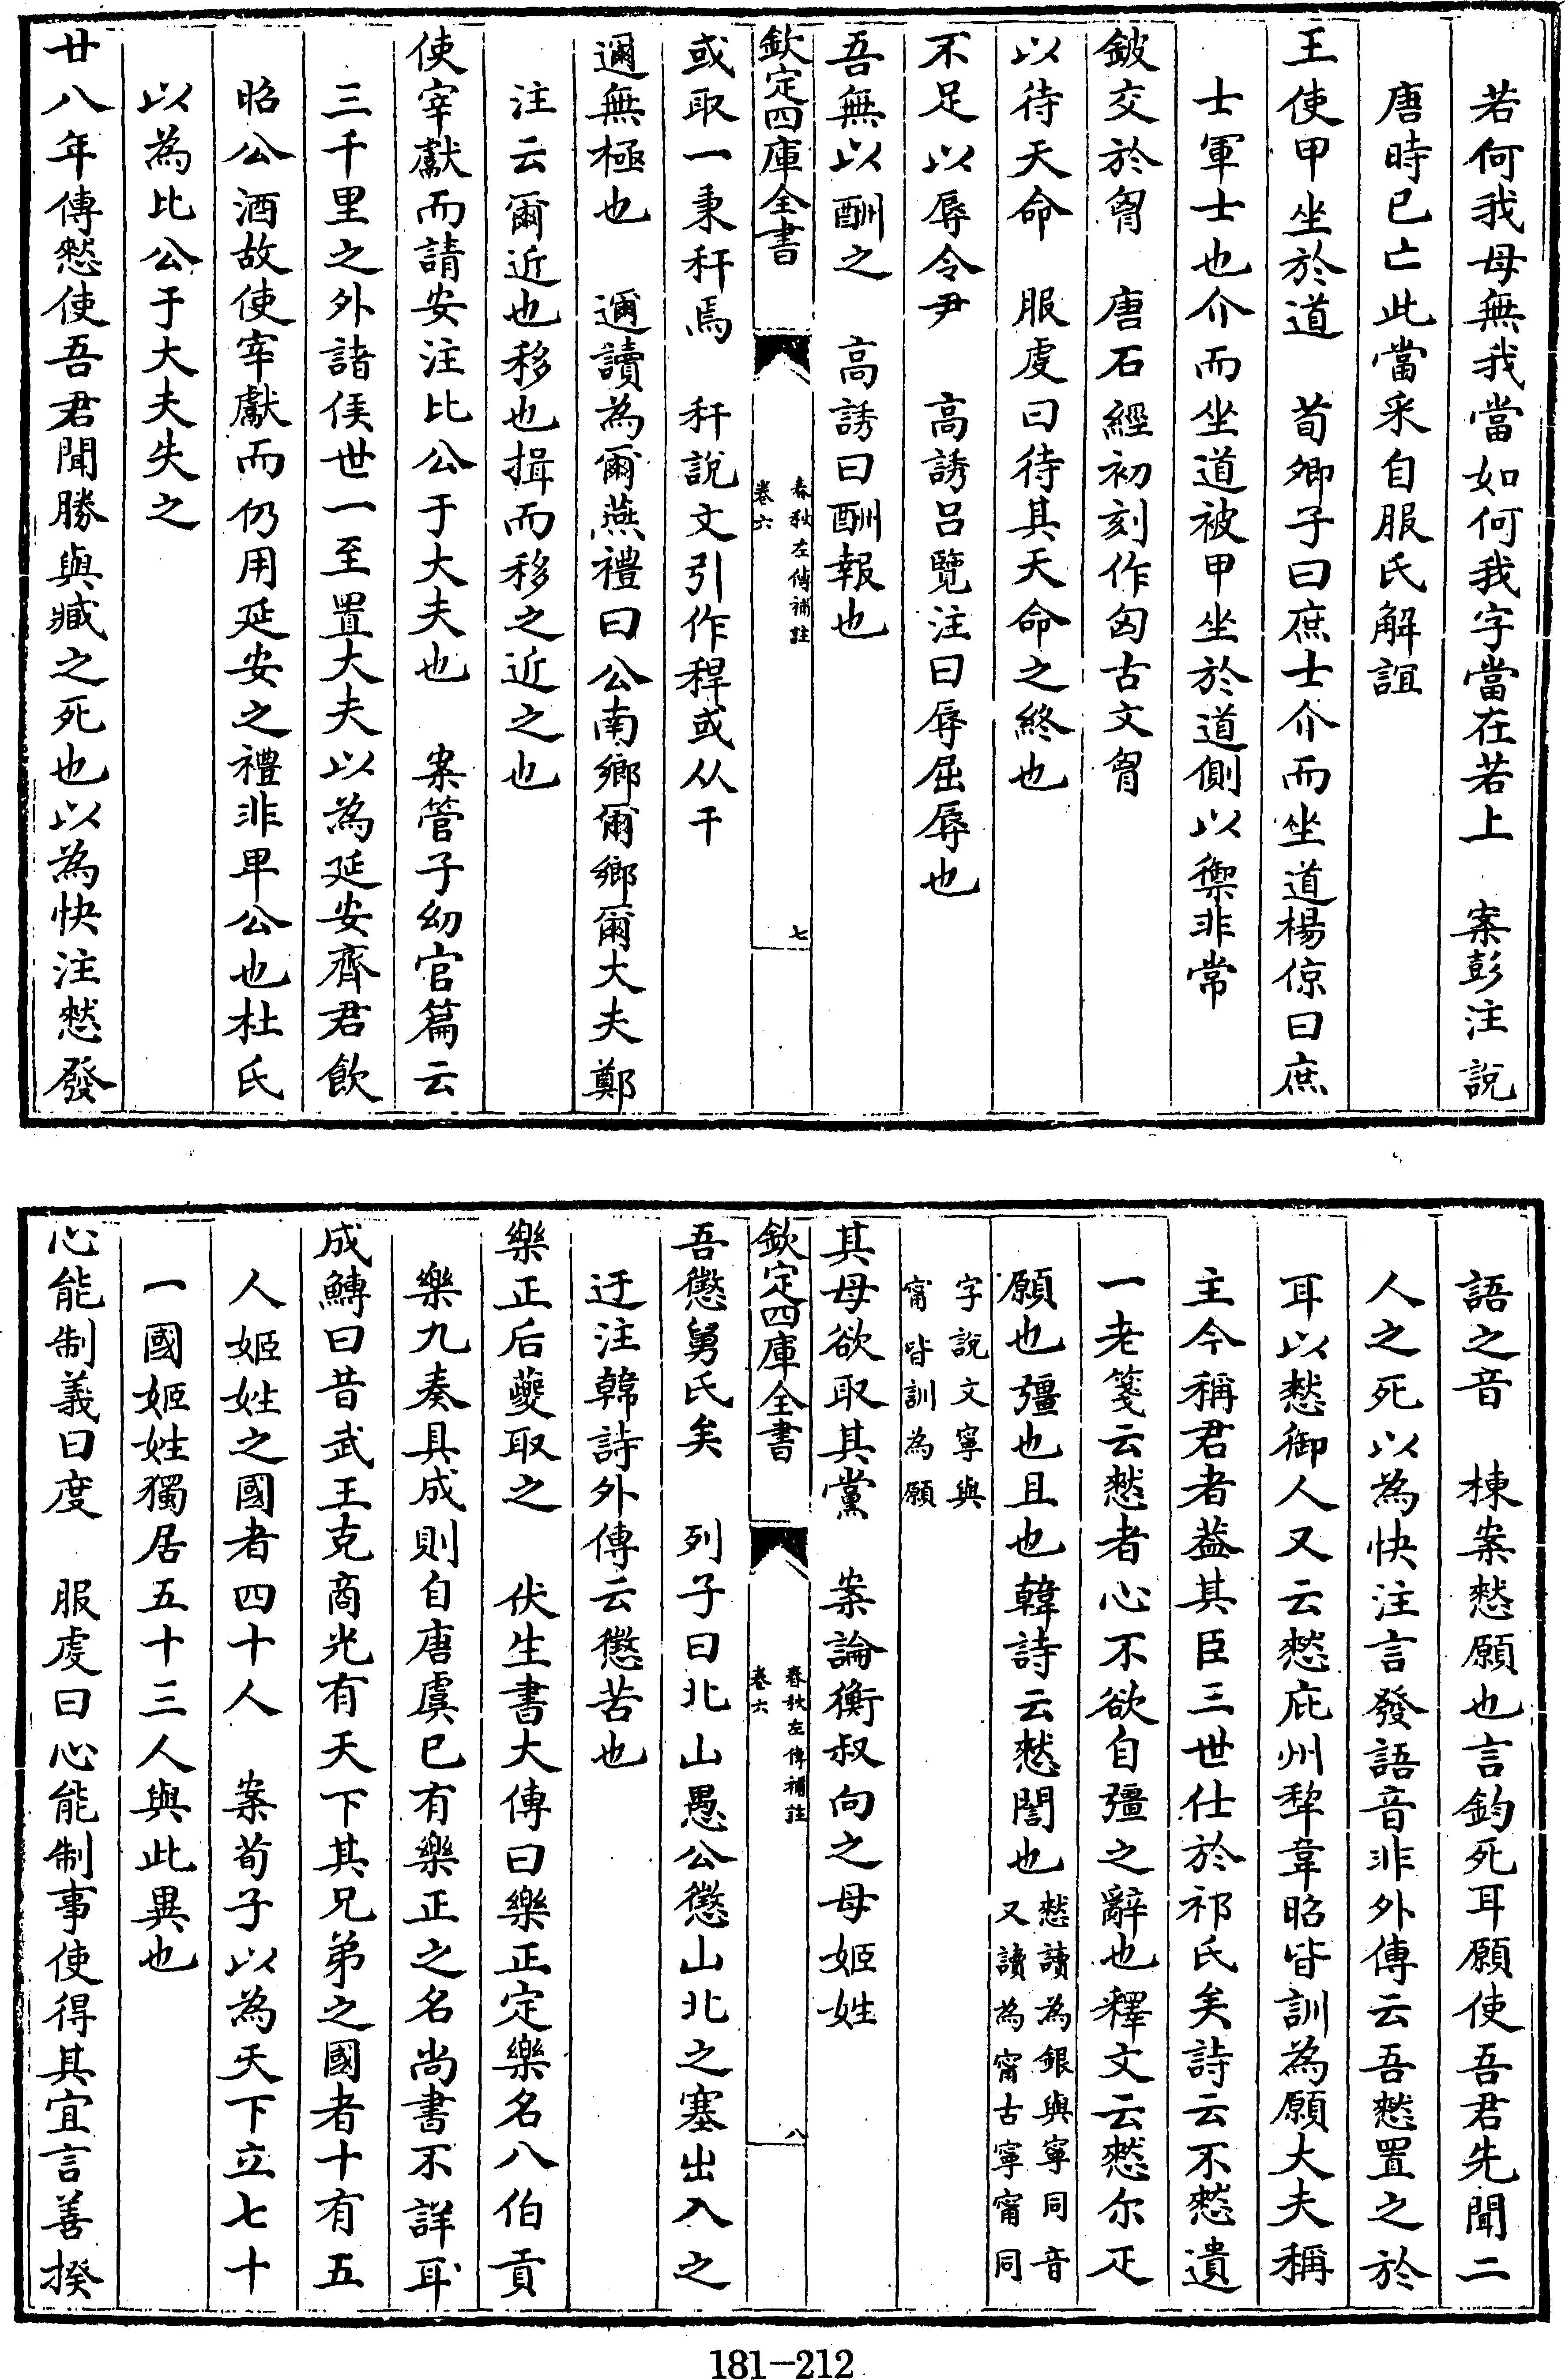 若何我母無我當如何我字當在若上　案彭注說
唐時已亡此當采自服氏解誼
王使甲坐於道　荀卿子曰庶士介而坐道楊倞曰庶
士軍士也介而坐道被甲坐於道側以禦非常
鈹交於胷　唐石經初刻作匈古文胷
以待天命　服虔曰待其天命之終也
不足以辱令尹　高誘呂覽注曰辱屈辱也
吾無以酬之　高誘曰酬報也
欽定四庫全書
春秋左傳補註
卷六
七
或取一秉秆焉　秆說文引作稈或从干
邇無極也　邇讀為爾燕禮曰公南鄉爾鄉爾大夫鄭
注云爾近也移也揖而移之近之也
使宰獻而請安注比公于大夫也　案管子幼官篇云
三千里之外諸侯世一至置大夫以為延安齊君飲
昭公酒故使宰獻而仍用延安之禮非卑公也杜氏
以為比公于大夫失之
廿八年傳憖使吾君聞勝與臧之死也以為快注憖發
語之音　棟案憖願也言鈞死耳願使吾君先聞二
人之死以為快注言發語音非外傳云吾憖置之於
耳以憖御人又云憖庇州犂韋昭皆訓為願大夫稱
主今稱君者益其臣三世仕於祁氏矣詩云不憖遺
一老箋云憖者心不欲自彊之辭也釋文云憖尔疋
願也彊也且也韓詩云憖誾也憖讀為銀與寧同音
又讀為甯古寧甯同
字說文寧與
甯皆訓為願
其母欲取其黨　案論衡叔向之母姬姓
欽定四庫全書
春秋左傳補註
卷六
八
吾懲舅氏矣　列子曰北山愚公懲山北之塞出入之
迂注韓詩外傳云懲苦也
樂正后夔取之　伏生書大傳曰樂正定樂名八伯貢
樂九奏具成則自唐虞已有樂正之名尚書不詳耳
成鱄曰昔武王克商光有天下其兄弟之國者十有五
人姬姓之國者四十人　案荀子以為天下立七十
一國姬姓獨居五十三人與此異也
心能制義曰度　服虔曰心能制事使得其宜言善揆
181-212